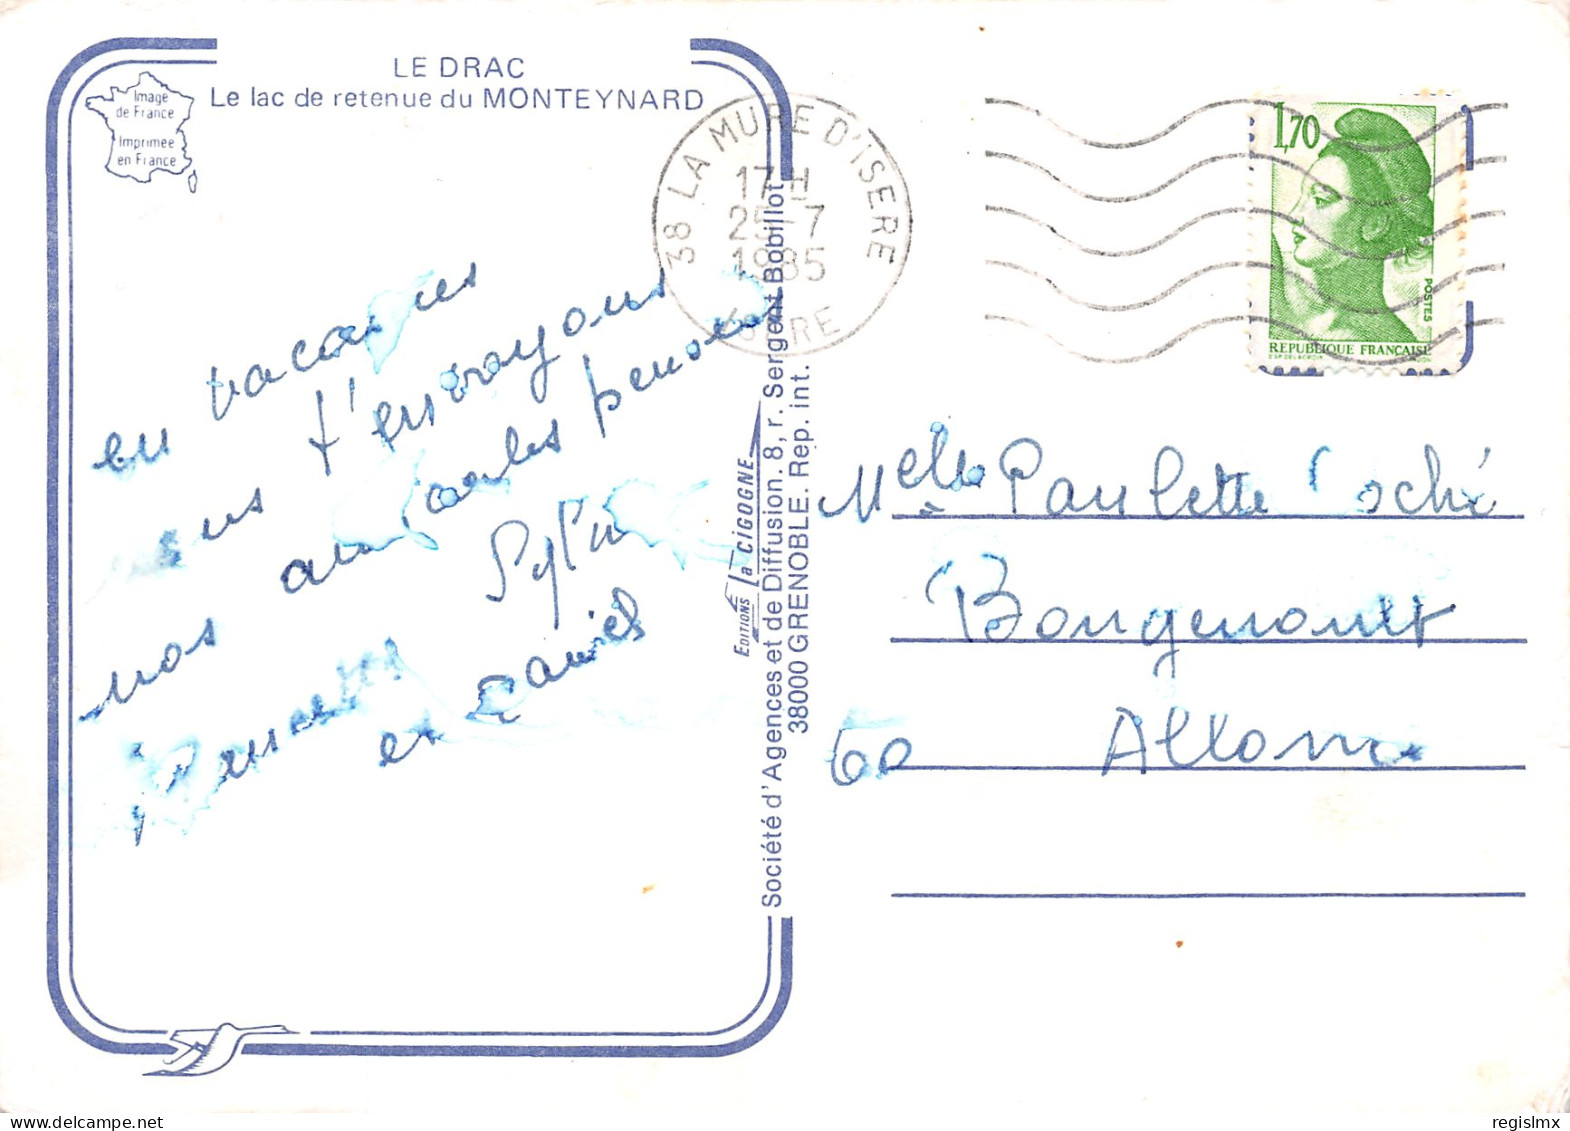 LE DRAC
Le lac de retenue du MONTEYNARD
Image
de France
Imprimée
en France
38 LA MURE D'ISERE
17 H
25-7
1985
ISERE
1,70
POSTES
REPUBLIQUE FRANÇAISE
en vacances
nous t'envoyons
nos amicales pensées
Sylvie
et Daniel
EDITIONS la CIGOGNE
Société d'Agences et de Diffusion. 8, r. Sergent Bobillot
38000 GRENOBLE. Rep. int.
Melle Paulette
60
regislmx
delcampe.net